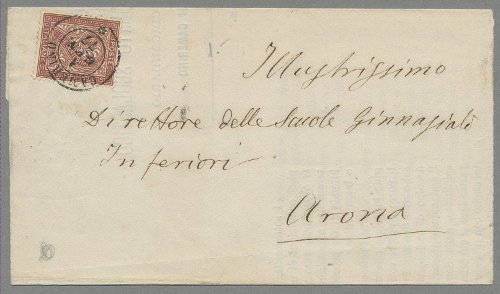 Illustrissimo
Direttore delle Scuole Ginnasiali
Inferiori
Arona